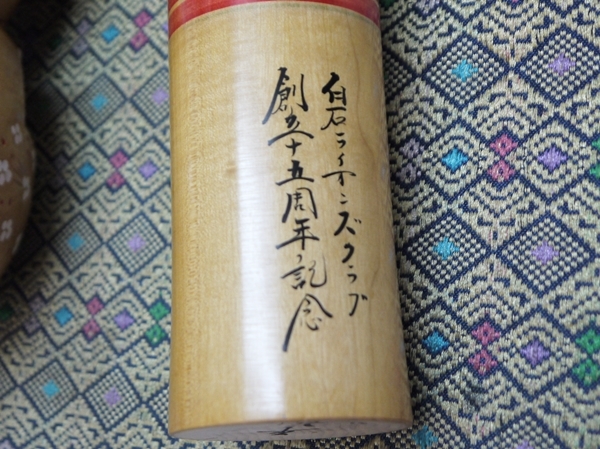 白石ライオンズクラブ
創立十五周年記念